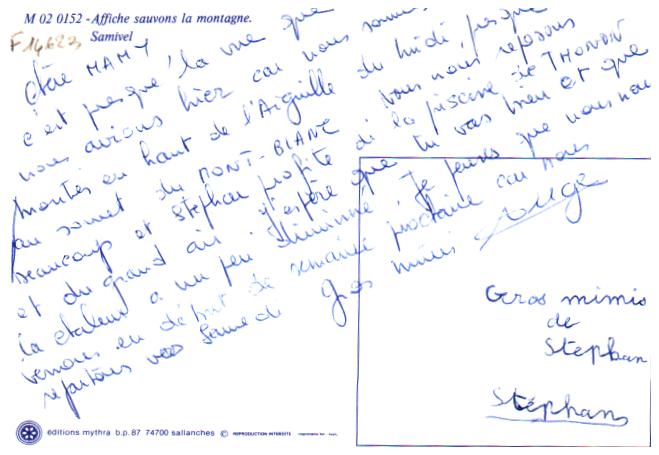 M 02 0152 - Affiche sauvons la montagne.
Samivel
F14623
Chère MAMY
c'est presque, la vue que
nous avions hier car nous sommes
montés en haut de l'Aiguille du Midi, presque
au sommet du MONT-BLANC. Nous nous reposons
beaucoup et Stephan profite de la piscine de THONON
et du grand air. J'espère que tu vas bien et que
la chaleur a un peu diminué. Je pense que nous nous
verrons en début de semaine prochaine car nous
repartons samedi Gros mimis
Gros mimis
de
Stephan
Stéphane
éditions mythra b.p. 87 74700 sallanches © REPRODUCTION INTERDITE